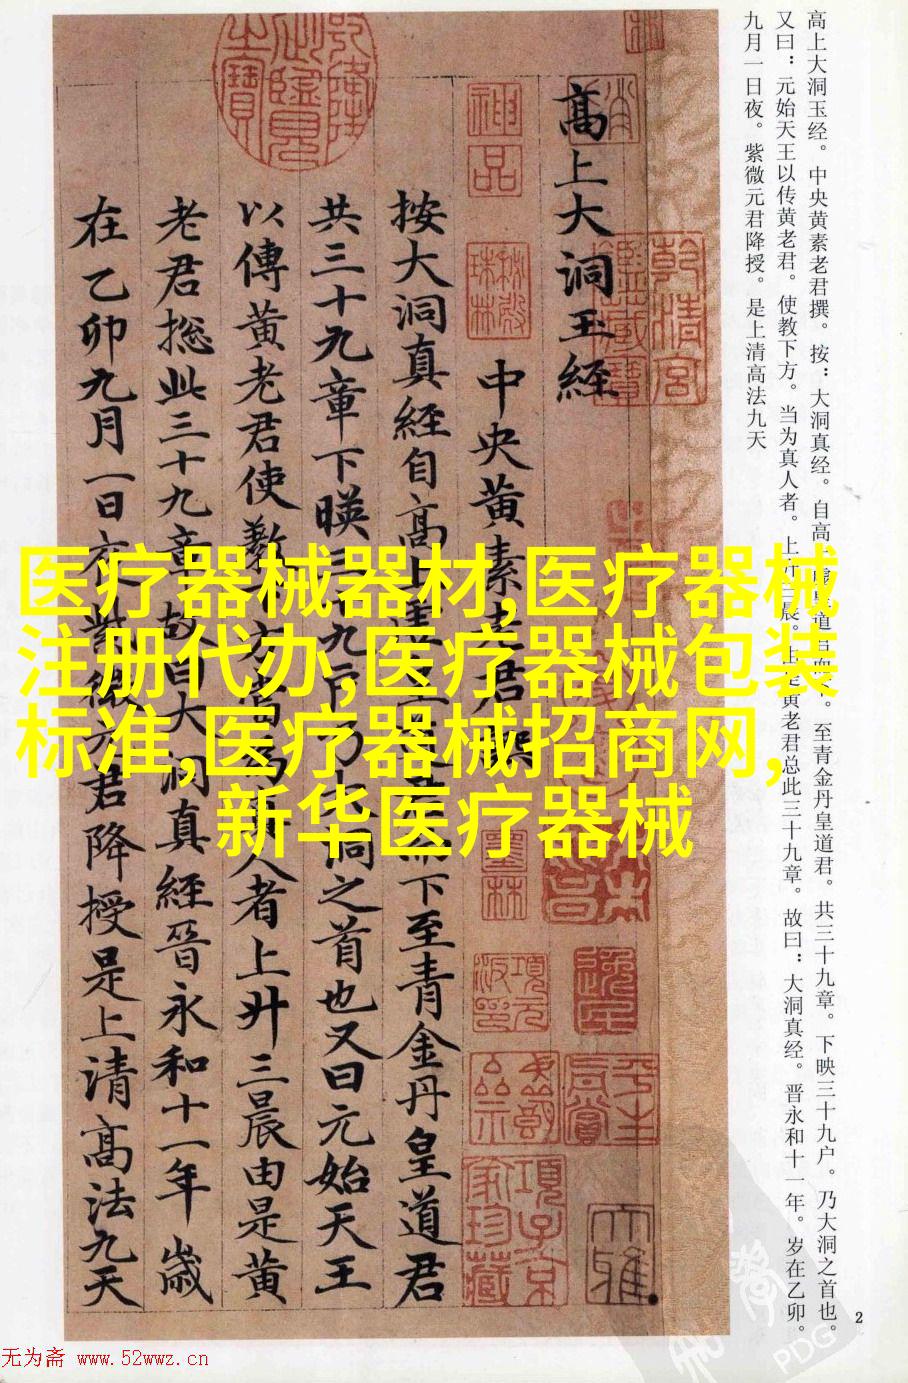 高上大洞玉经。中央黄素老君撰。按：大洞真经。自高上虚皇道君而下。至青金丹皇道君。共三十九章。下映三十九户。乃大洞之首也。
又曰：元始天王以传黄老君。使教下方。当为真人者。上升三晨。由是黄老君总此三十九章。故曰：大洞真经。晋永和十一年。岁在乙卯。
九月一日夜。紫微元君降授。是上清高法九天
高上大洞玉經
中央黄素老君
按大洞真經自高上虚皇道君而下至青金丹皇道君
共三十九章下暎三十九户乃大洞之首也又曰元始天王
以傳黄老君使教下方當為真人者上升三晨由是黄
老君捴此三十九章故曰大洞真經晉永和十一年歲
在乙卯九月一日夜紫微元君降授是上清高法九天
神品
乾清宫鑑藏寶
医疗器械器材,医疗器械
注册代办,医疗器械包装
标准,医疗器械招商网,
新华医疗器械
2
无为斋 www.52wwz.cn
PDG